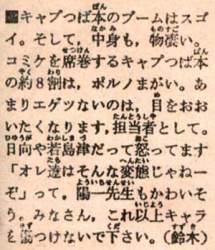 ■キャプつば本のブームはスゴ
イ。そして，中身も，物凄い。
コミケを席巻するキャプつば本
の約8割は，ポルノまがい。あ
まりエゲツないのは，目をおお
いたくなります，担当者として。
日向や若島津だって怒ってます
「オレ達はそんな変態じゃねー
ぞ」って，陽一先生もかわいそ
う。みなさん，これ以上キャラ
を傷つけないで下さい。（鈴木）